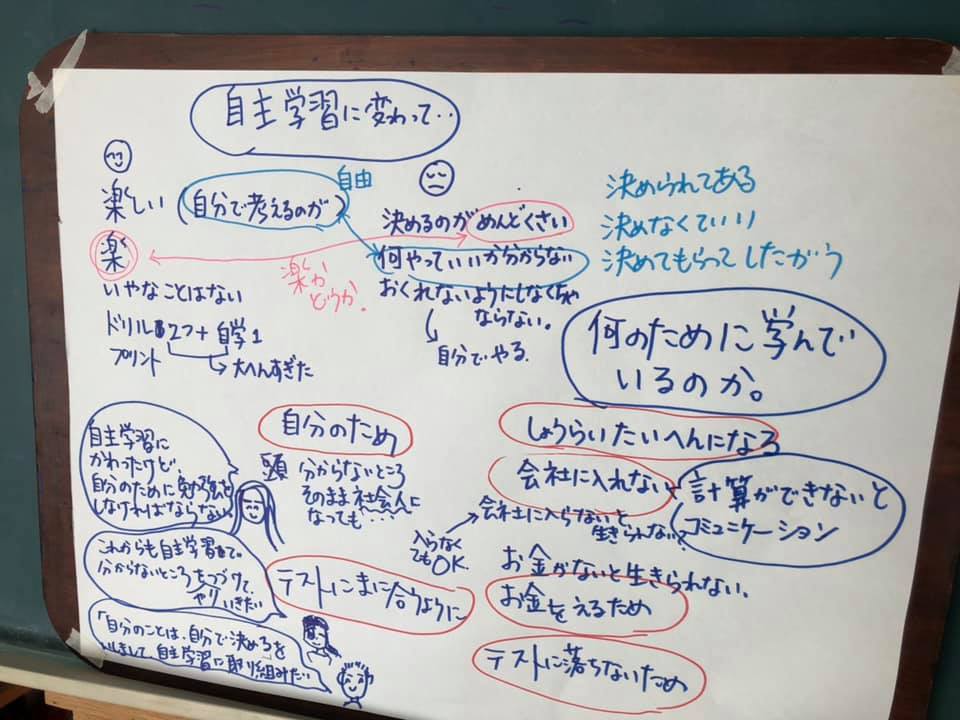 自主学習に変わって‥
楽しい(自分で考えるのが)
自由
楽
いやなことはない
ドリル2つ+自学1
プリント
大へんすぎた
楽か
どうか。
決めるのがめんどくさい
何やっていいか分からない
おくれないようにしなくちゃ
ならない。
自分でやる。
決められてある
決めなくていい
決めてもらってしたがう
何のために学んで
いるのか。
自分のため
頭 分からないところ
そのまま社会人に
なっても‥‥
テストにまに合うように
しょうらいたいへんになる
会社に入れない
計算ができないと
コミュニケーション
会社に入らないと
生きられない。
入らなく
てもOK.
お金がないと生きられない。
お金をえるため
テストに落ちないため
自主学習に
かわったけど、
自分のために勉強を
しなければならない
これからも自主学習で。
分からないところをつづけて、
やりいきたい
「自分のことは、自分で決める」を
して、自主学習に取り組みたい